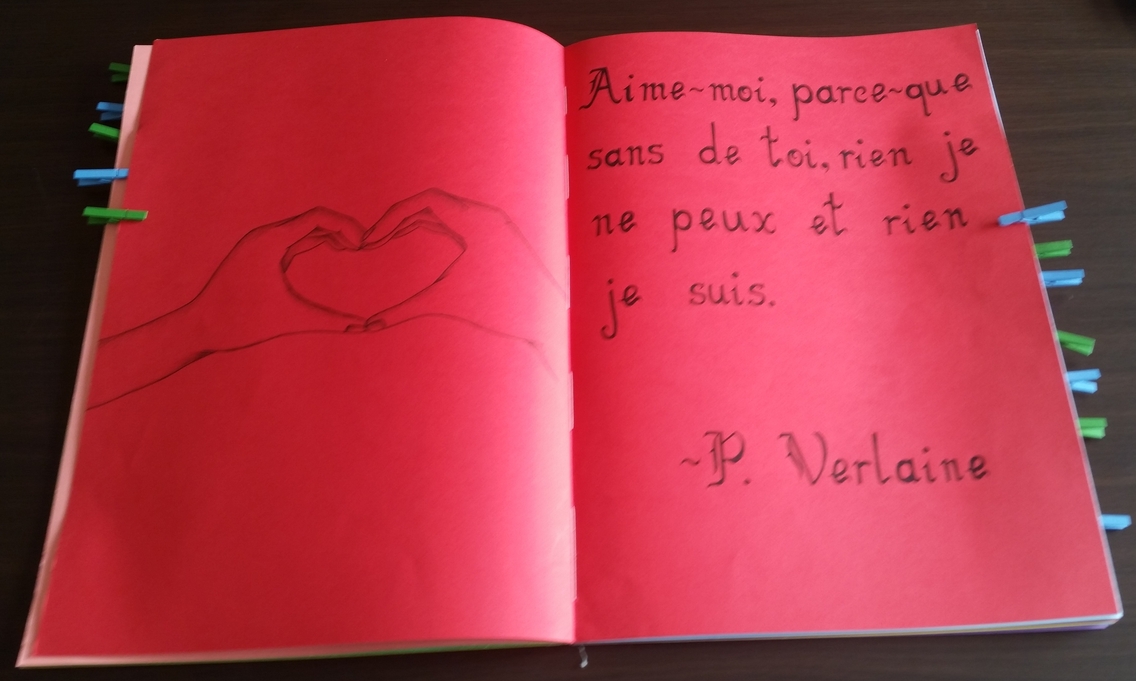 Aime~moi, parce~que
sans de toi, rien je
ne peux et rien
je suis.
~P. Verlaine